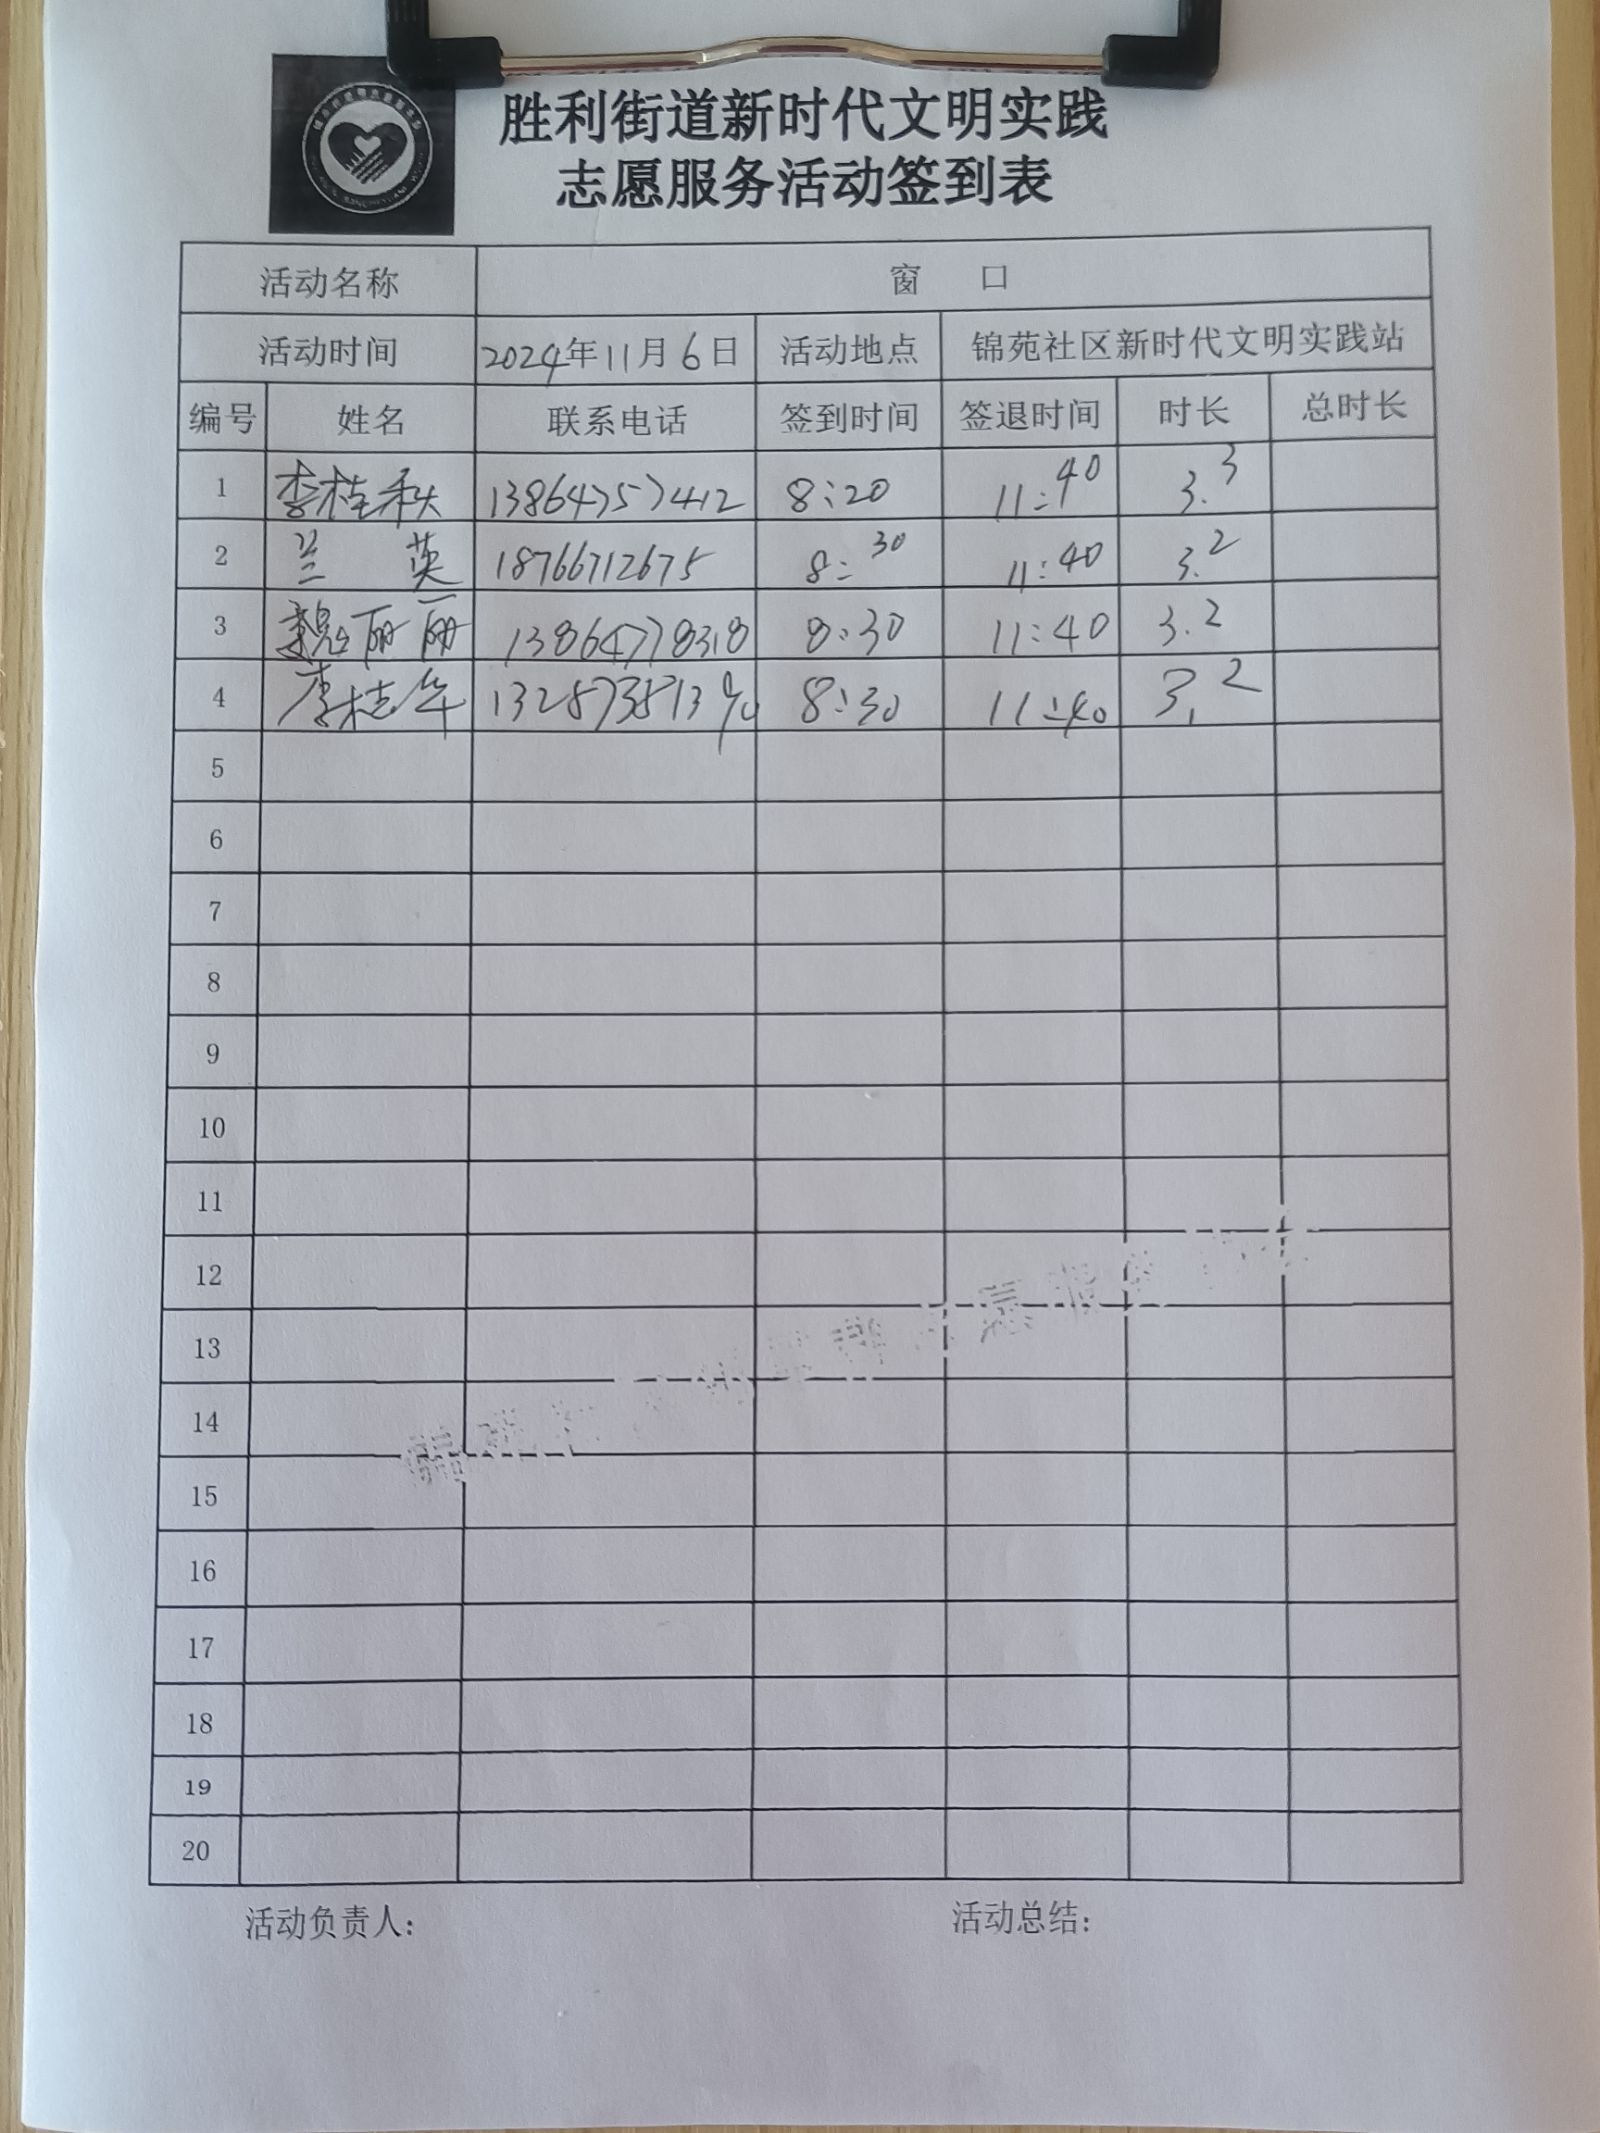 胜利街道新时代文明实践
志愿服务活动签到表
活动名称 窗 口
活动时间 2024年11月6日 活动地点 锦苑社区新时代文明实践站
编号 姓名 联系电话 签到时间 签退时间 时长 总时长
1 李桂秋 13864757412 8:20 11:40 3.3
2 兰 英 18766712675 8:30 11:40 3.2
3 魏丽丽 13864778318 8:30 11:40 3.2
4 李桂华 8:30 11:40 3.2
5
6
7
8
9
10
11
12
13
14
15
16
17
18
19
20
活动负责人: 活动总结: